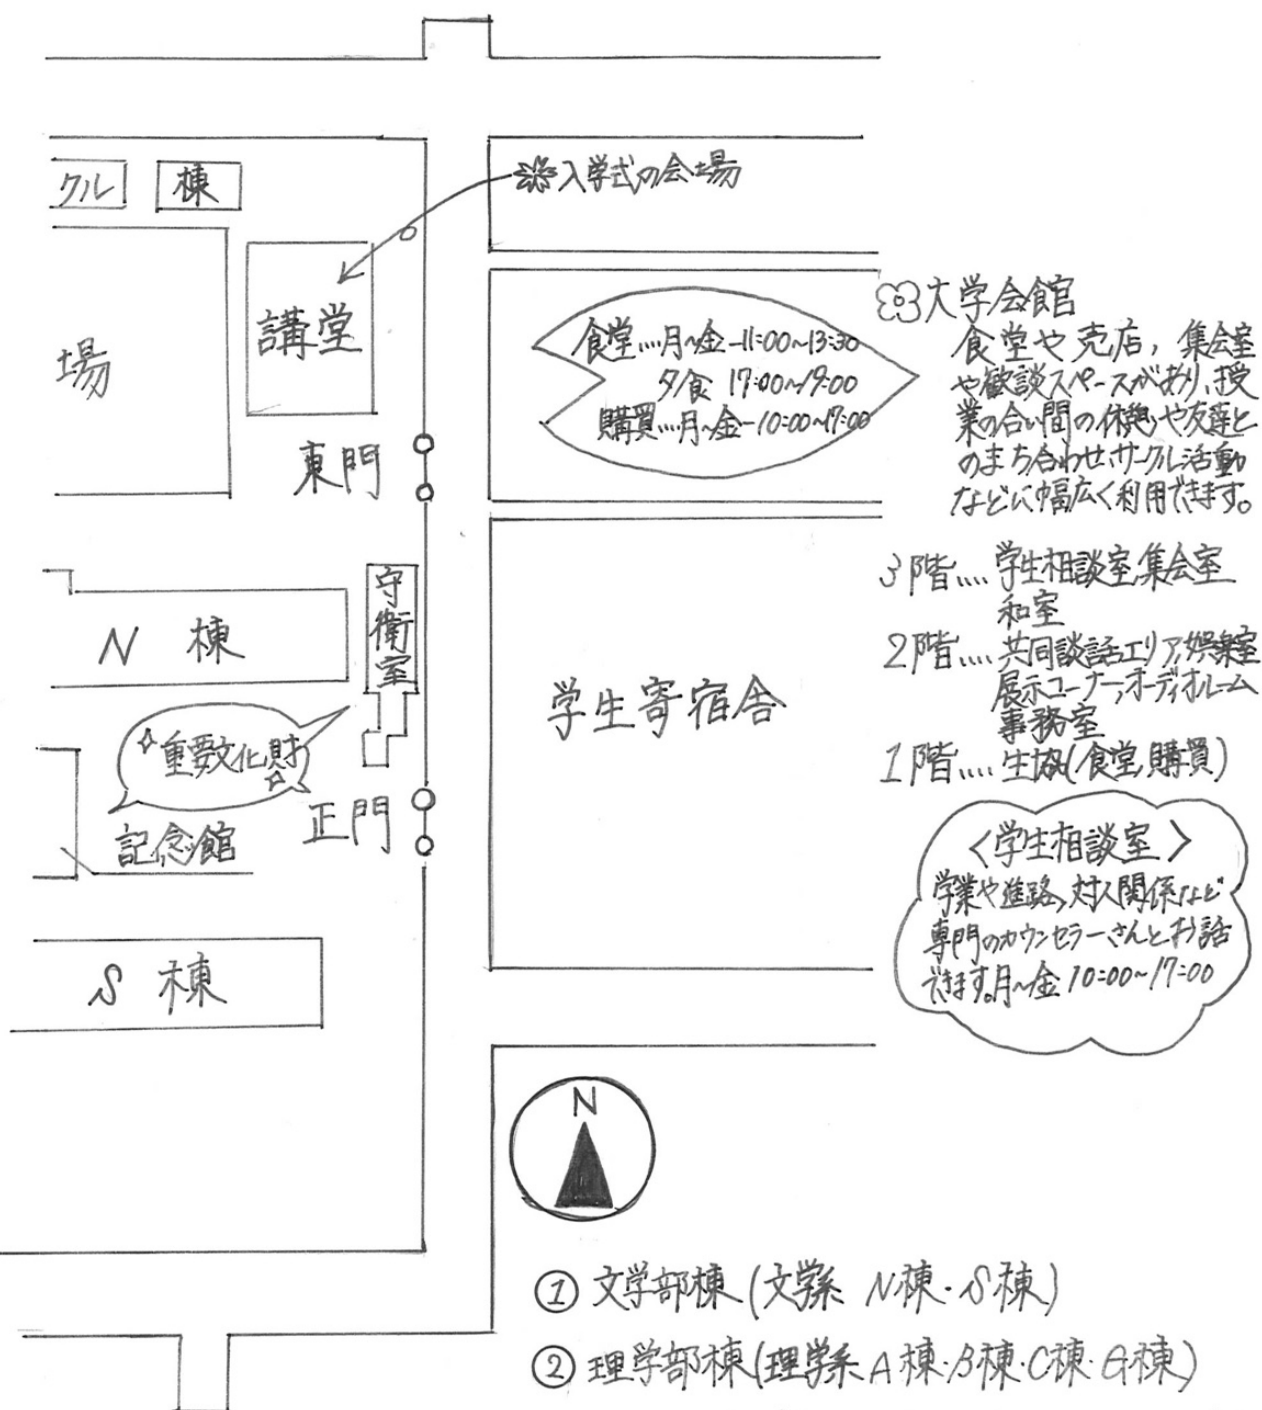 クル 棟
※入学式の会場
講堂
場
東門
食堂....月~金-11:00~13:30
夕食 17:00~19:00
購買....月~金-10:00~17:00
大学会館
食堂や売店,集会室
や歓談スペースがあり、授
業の合い間の休憩や友達と
のまち合わせ、サークル活動
などに幅広く利用できます。
3階....学生相談室,集会室
和室
2階....共同談話エリア,娯楽室
展示コーナー,オーディオルーム
事務室
1階....生協(食堂,購買)
<学生相談室>
学業や進路、対人関係など
専門のカウンセラーさんとお話
できます。月~金 10:00~17:00
守衛室
N 棟
学生寄宿舎
重要文化財
正門
記念館
S 棟
N
① 文学部棟(文学系 N棟・S棟)
② 理学部棟(理学系 A棟・B棟・C棟・G棟)